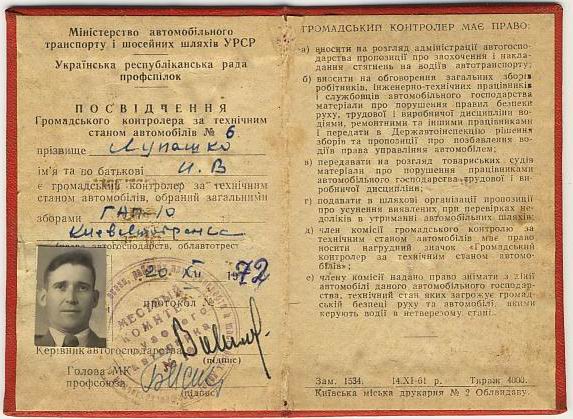 Міністерство автомобільного
транспорту і шосейних шляхів УРСР
Українська республіканська рада
профспілок
ПОСВІДЧЕННЯ
Громадського контролера за технічним
станом автомобілів № 6
прізвище Лупашко
ім'я та во батькові И.В
є громадський контролер за технічним
станом автомобілів, обраний загальними
зборами ГАП-10
Київ
(назва автогосподарств, облавтотрест
20 XII 1972
протокол №
Керівник автогосподарства
(підпис)
Голова МК
профсоюза
(підпис)
МЕСТНЫЙ
КОМИТЕТ
ГРОМАДСЬКИЙ КОНТРОЛЕР МАЄ ПРАВО:
а) вносити на розгляд адміністрації автогоспо-
дарства пропозиції про заохочення і накла-
дання стягнень на водіїв автотранспорту;
б) вносити на обговорення загальних зборів
робітників, інженерно-технічних працівників
і службовців автомобільного господарства
матеріали про порушення правил безпеки
руху, трудової і виробничої дисципліни во-
діями, ремонтними та іншими працівниками
і передати в Державтоінспекцію рішення
зборів та пропозиції про позбавлення водіїв
права управління автомобілем;
в) передавати на розгляд товариських судів
матеріали про порушення працівниками
автомобільного господарства трудової і ви-
робничої дисципліни;
г) подавати в шляхові організації пропозиції
про усунення виявлених при перевірках не-
доліків в утриманні автомобільних шляхів;
д) член комісії громадського контролю за
технічним станом автомобілів має право
носити нагрудний значок «Громадський
контролер за технічним станом автомо-
білів»;
е) члену комісії надано право знімати з лінії
автомобілі даного автомобільного господар-
ства, технічний стан яких загрожує громад-
ській безпеці руху та автомобілі, якими
керують водії в нетверезому стані.
Зам. 1534. 14.XI-61 р. Тираж 4000.
Київська міська друкарня № 2 Облвидаву.